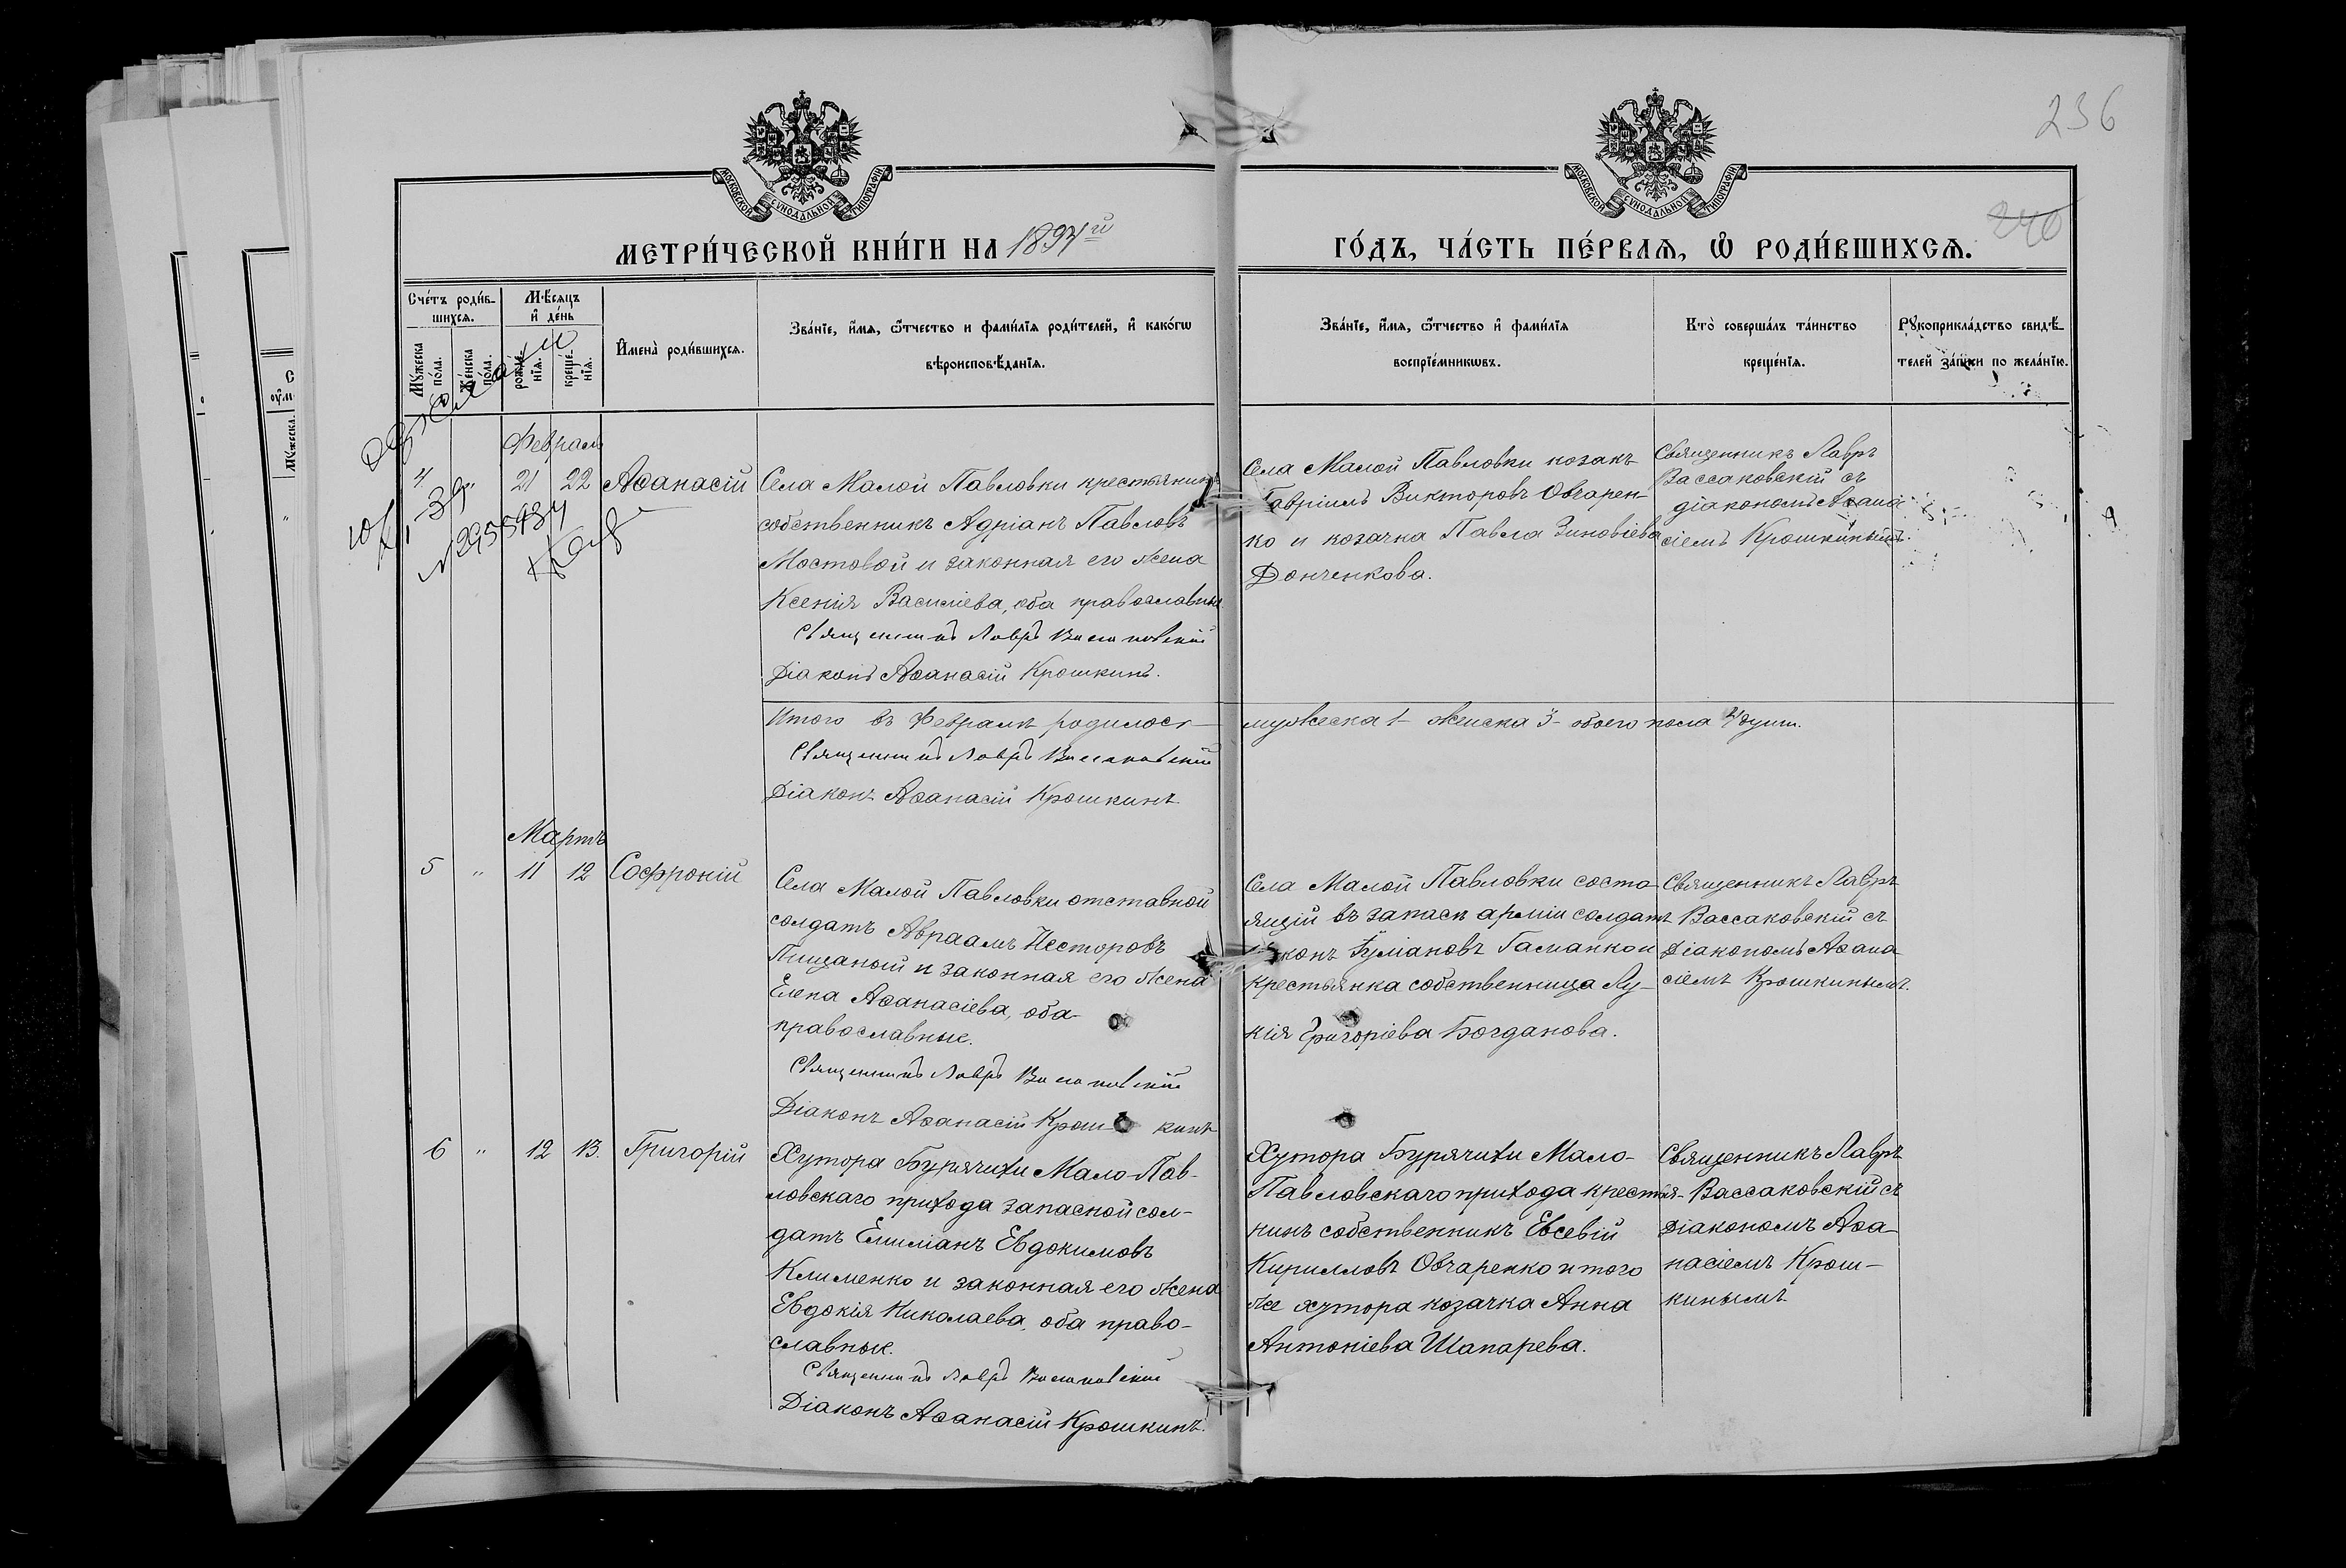 236
240
МОСКОВСКОЙ СѴНОДАЛЬНОЙ ТИПОГРАФІИ
МОСКОВСКОЙ СѴНОДАЛЬНОЙ ТИПОГРАФІИ
МЕТРИ́ЧЕСКОЙ КНИ́ГИ НА 1894й
ГО́ДЪ, ЧА́СТЬ ПЕ́РВАѦ, Ѡ҆ РОДИ́ВШИХСѦ.
Сче́тъ роди́в-
шихсѧ.
Мꙋ́жеска по́ла.
Же́нска по́ла.
М́ѣсяцъ
и҆ де́нь
рожде́-
нїѧ.
креще́-
нїѧ.
И҆мена̀ роди́вшихсѧ.
Зва́нїе, и҆́мѧ, ѻ҆́тчество и фами́лїѧ роди́телей, и҆ како́гѡ
вѣроисповѣ́данїѧ.
Зва́нїе, и҆́мѧ, ѻ҆́тчество и҆ фами́лїѧ
воспрїе́мникѡвъ.
Кто̀ соверша́лъ та́инство
креще́нїѧ.
Рꙋкоприкла́дство свидѣ́-
телей за́писи по жела́нїю.
Февраль
4 " 21 22 Аѳанасій
№ 2955434
Села Малой Павловки крестьянинъ
собственникъ Адріанъ Павловъ
Мостовой и законная его жена
Ксенія Василіева, оба православные
Священникъ Лавръ Вассаковскій
Діаконъ Аѳанасій Крошкинъ.
Села Малой Павловки козакъ
Гавріилъ Викторовъ Овчарен-
ко и козачка Павла Зиновіева
Донченкова.
Священникъ Лавръ
Вассаковскій съ
діакономъ Аѳана
сіемъ Крошкинымъ.
Итого въ Февралѣ родилось мужеска 1 женска 3 обоего пола 4 душ.
Священникъ Лавръ Вассаковскій
Діаконъ Аѳанасій Крошкинъ
Мартъ
5 " 11 12 Софроній
Села Малой Павловки отставной
солдатъ Авраамъ Несторовъ
Пищаной и законная его жена
Елена Аѳанасіева, оба
православные.
Священникъ Лавръ Вассаковскій
Діаконъ Аѳанасій Крошкинъ
Села Малой Павловки состо
ящій въ запасѣ арміи солдатъ
крестьянка собственница Лу-
кія Григоріева Богданова.
Священникъ Лавръ
Вассаковскій съ
Діакономъ Аѳана
сіемъ Крошкинымъ.
6 " 12 13. Григорій
Хутора Бурячихи Мало-Пав-
ловскаго прихода запасной сол-
датъ Емиліанъ Евдокимовъ
Клименко и законная его жена
Евдокія Николаева, оба право-
славные.
Священникъ Лавръ Вассаковскій
Діаконъ Аѳанасій Крошкинъ.
Хутора Бурячихи Мало-
Павловскаго прихода крестья-
нинъ собственникъ Евсевій
Кирилловъ Овчаренко и того
же хутора козачка Анна
Антоніева Шапарева.
Священникъ Лавръ
Вассаковскій съ
Діакономъ Аѳа-
насіемъ Крош-
кинымъ